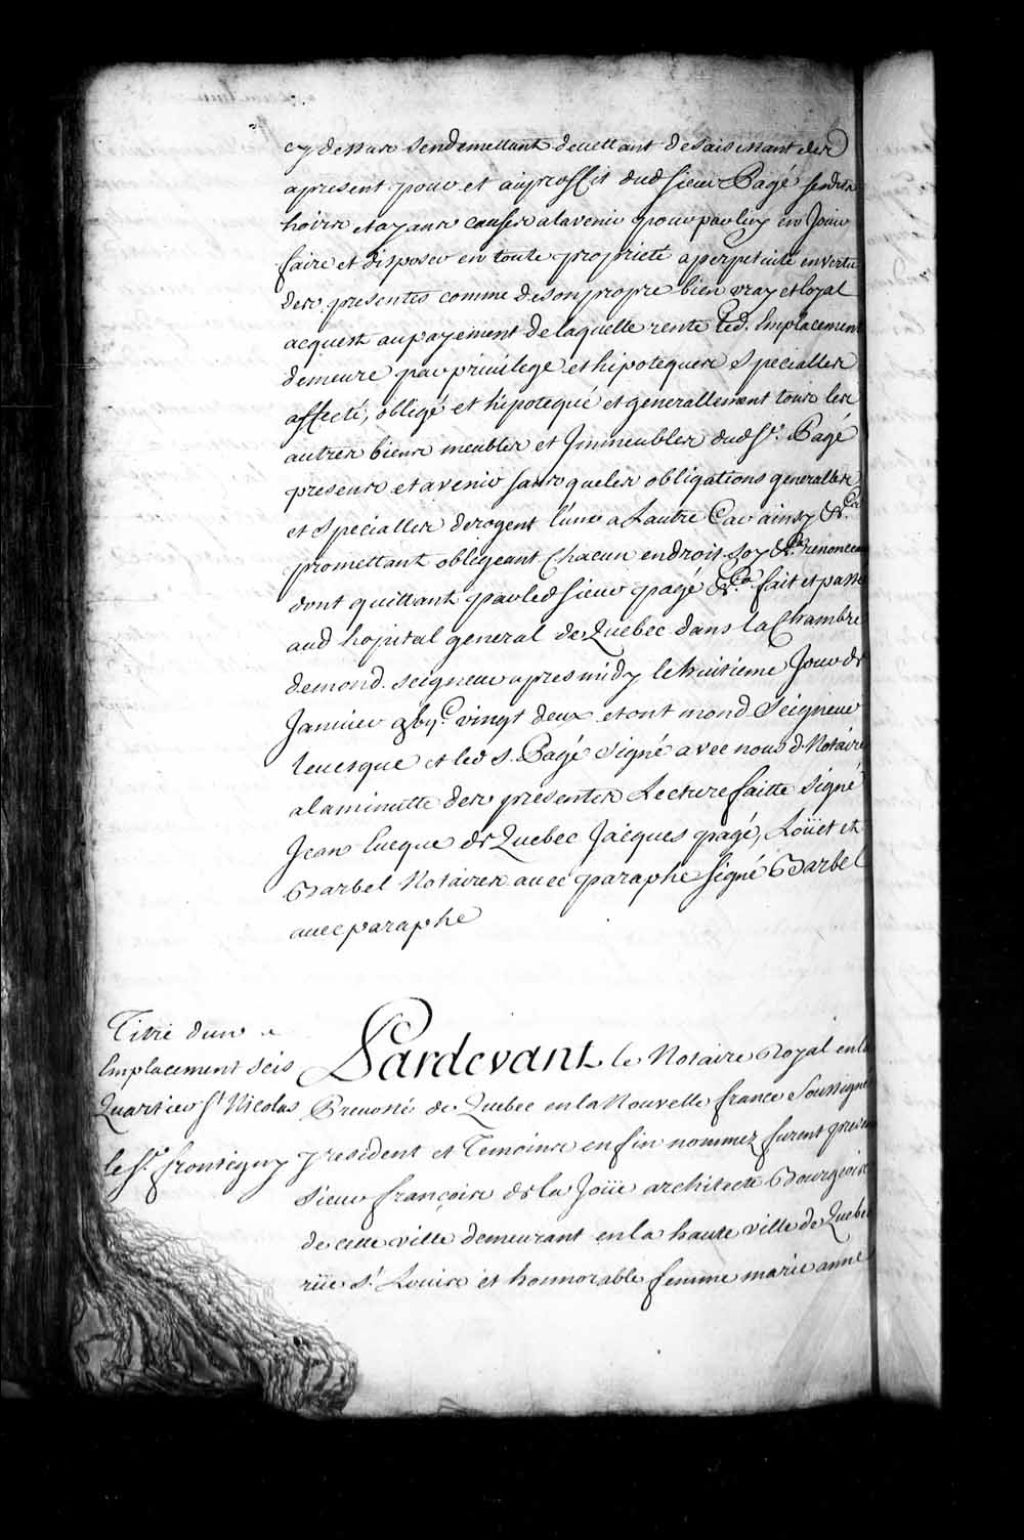 cy dessus sendemettant devettant desaisissant des
apresent pour et auproffit dud sieur Pagé sesdits
hoirs et ayans causes alavenir pour par luy en Jouir
faire et disposer en toute propriete a perpetuité en vertu
des presentes comme deson propre bien vray et loyal
acquest au payement de laquelle rente led. Emplacement
demeure par privilege et hipoteques speciallem
affecté, obligé et hipotequé et generallement tous les
autres biens meubles et Jmmeubles dud Sr. Pagé
presens et avenir sans queles obligations generalles
et specialles derogent l'une a Lautre Car ainsy &ca.
promettant obligeant Chacun endroit soy &ca. renonceant
dont quittant par led sieur pagé &ca. fait et passé
aud hopital general de Quebec dans la Chambre
demond. seigneur apres midy le huitieme Jour de
Janvier gbyc. vingt deux et ont mond Seigneur
levesque et led S. Pagé signé avec nous d. Notaires
alaminutte des presentes Lecture faitte signé
Jean Eveque de Quebec Jacques pagé, Loüet et
Barbel Notaires avec paraphe signé Barbel
avec paraphe
Titre dun
Emplacement scis
Quartier St Nicolas
le Sr. frontigny
Pardevant le Notaire Royal en la
Prevosté de Quebec en la Nouvelle france Soussigné
y resident et Temoins enfin nommez furent presens
sieur françois de la Joüe architecte Bourgeois
de cette ville demeurant en la haute ville de Quebec
rüe St. Louis et honnorable femme marie anne